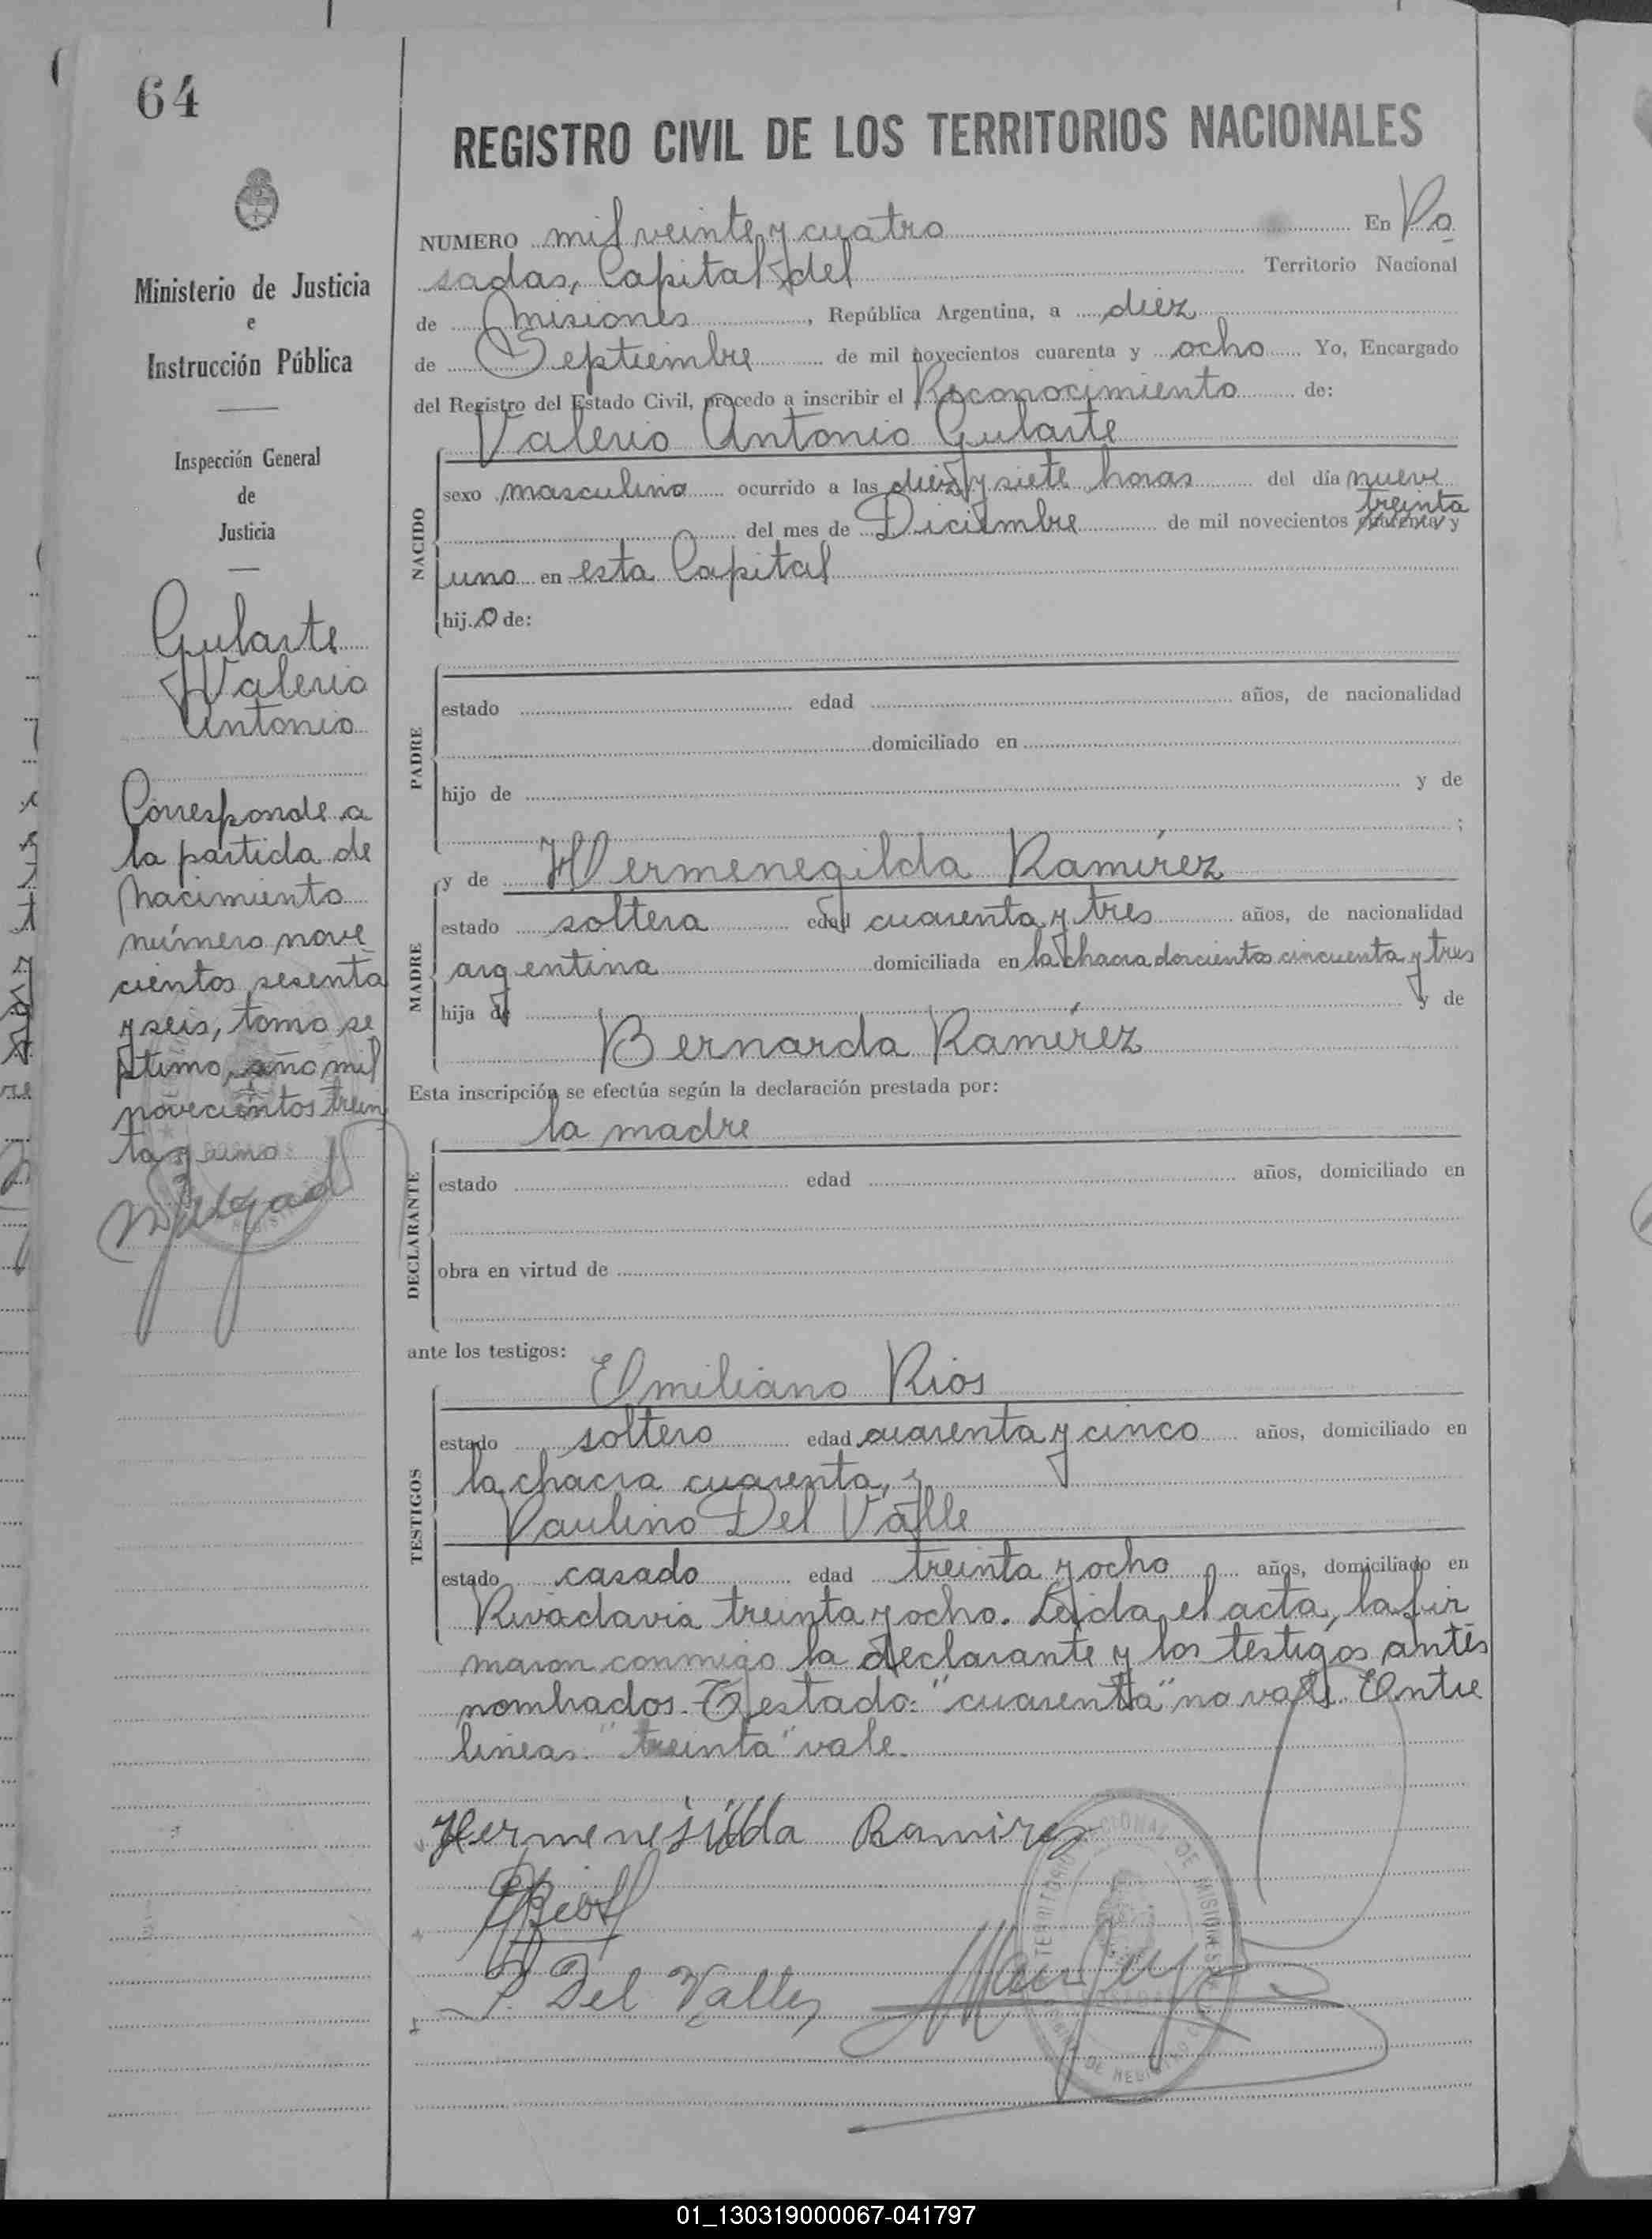 64
Ministerio de Justicia
e
Instrucción Pública
Inspección General
de
Justicia
Gularte
Valerio
Antonio
Corresponde a
la partida de
nacimiento
número nove
cientos sesenta
y seis, tomo se
ptimo, año mil
novecientos trein
ta y uno
REGISTRO CIVIL DE LOS TERRITORIOS NACIONALES
NUMERO mil veinte y cuatro En Po
sadas, Capital del Territorio Nacional
de Misiones, República Argentina, a diez
de Septiembre de mil novecientos cuarenta y ocho Yo, Encargado
del Registro del Estado Civil, procedo a inscribir el Reconocimiento de:
Valerio Antonio Gularte
NACIDO
sexo masculino ocurrido a las diez y siete horas del día nueve
treinta
del mes de Diciembre de mil novecientos cuarenta y
uno en esta Capital
hijo de:
PADRE
estado edad años, de nacionalidad
domiciliado en
hijo de y de
;
y de Hermenegilda Ramírez
MADRE
estado soltera edad cuarenta y tres años, de nacionalidad
argentina domiciliada en la chacra doscientos cincuenta y tres
hija de y de
Bernarda Ramírez
Esta inscripción se efectúa según la declaración prestada por:
la madre
DECLARANTE
estado edad años, domiciliado en
obra en virtud de
ante los testigos:
Emiliano Rios
TESTIGOS
estado soltero edad cuarenta y cinco años, domiciliado en
la chacra cuarenta, y
Paulino Del Valle
estado casado edad treinta y ocho años, domiciliado en
Rivadavia treinta y ocho. Leida el acta, la fir
maron conmigo la declarante y los testigos antes
nombrados. Testado: "cuarenta" no vale. Entre
lineas: "treinta" vale.
Hermenejilda Ramirez
ERios
P. Del Valle
TERRITORIO NACIONAL DE MISIONES
01_130319000067-041797